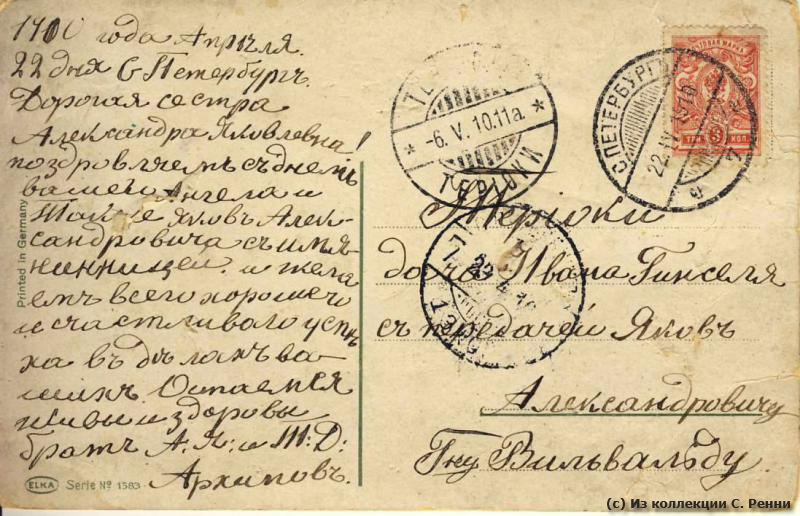 1910 года Апрѣля.
22 дня С Петербургъ
Дорогая сестра
Александра Яковлевна!
поздровляемъ съ днемъ
вашего Ангела и
Также Яковъ Алек-
сандровича съ имя-
нинницей. и жела
емъ всего хорошего
и счастливаго успѣ
ха въ дѣлахъ ва-
шихъ Остаемся
живы и здоровы
братъ А. Я: и М: Д:
Архиповъ.
Printed in Germany
ELKA Serie № 1583
ТЕРІОКИ
-6.V.10.11a.
С.ПЕТЕРБУРГЪ
22.IV.1910
ПОЧТОВАЯ МАРКА
ТРИ 3 КОП.
Теріоки
дача Ивана Гинселя
съ передачей Яковъ
Александровичу
Гну Вильвальду.
(с) Из коллекции С. Ренни